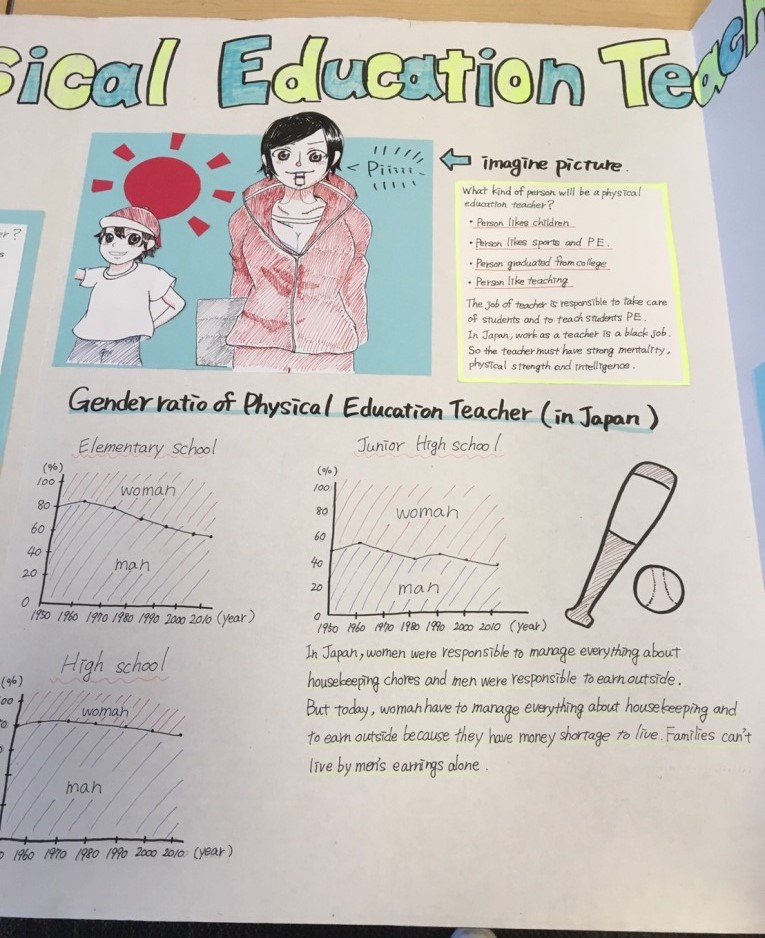 sical Education Teach
er?
s
Piiiii
imagine picture.
What kind of person will be a physical
education teacher?
• Person likes children
• Person likes sports and P.E.
• Person graduated from college
• Person like teaching
The job of teacher is responsible to take care
of students and to teach students PE.
In Japan, work as a teacher is a black job.
So the teacher must have strong mentality,
physical strength and intelligence.
Gender ratio of Physical Education Teacher (in Japan)
Elementary school
(%)
100
80
60
40
20
0
woman
man
1950 1960 1970 1980 1990 2000 2010 (year)
Junior High school
(%)
100
80
60
40
20
0
woman
man
1950 1960 1970 1980 1990 2000 2010 (year)
High school
(%)
00
0
woman
man
0 1960 1970 1980 1990 2000 2010 (year)
In Japan, women were responsible to manage everything about
housekeeping chores and men were responsible to earn outside.
But today, woman have to manage everything about housekeeping and
to earn outside because they have money shortage to live. Families can't
live by men's earnings alone.